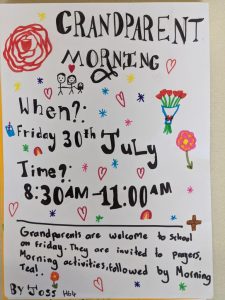 GRANDPARENT
MORNING
When?:
Friday 30th JuLy
Time?:
8:30AM-11:00AM
Grandparents are welcome to school
on friday. They are invited to prayers,
Morning activities, followed by Morning
Tea!
BY JOSS H64